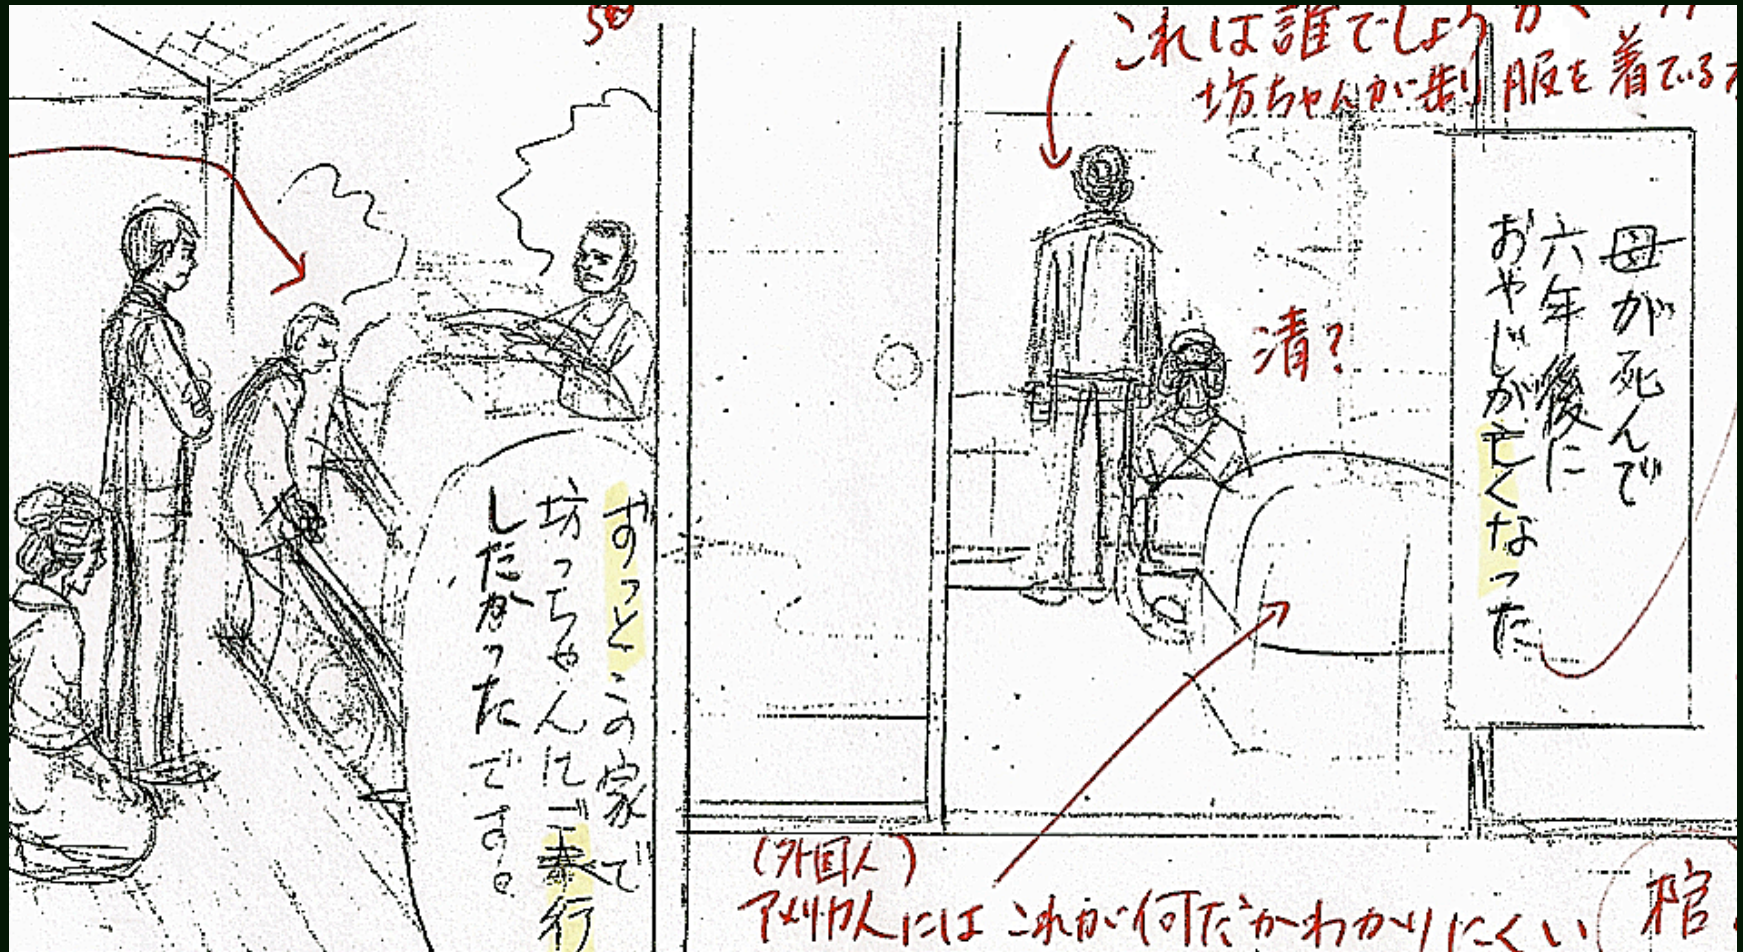 これは誰でしょうか
坊ちゃんが制服を着ている
母が死んで
六年後に
おやじが亡くなった
清?
ずっとこの家で
坊っちゃんにご奉行
したかったです。
(外国人)
アメリカ人にはこれが何だかわかりにくい
棺